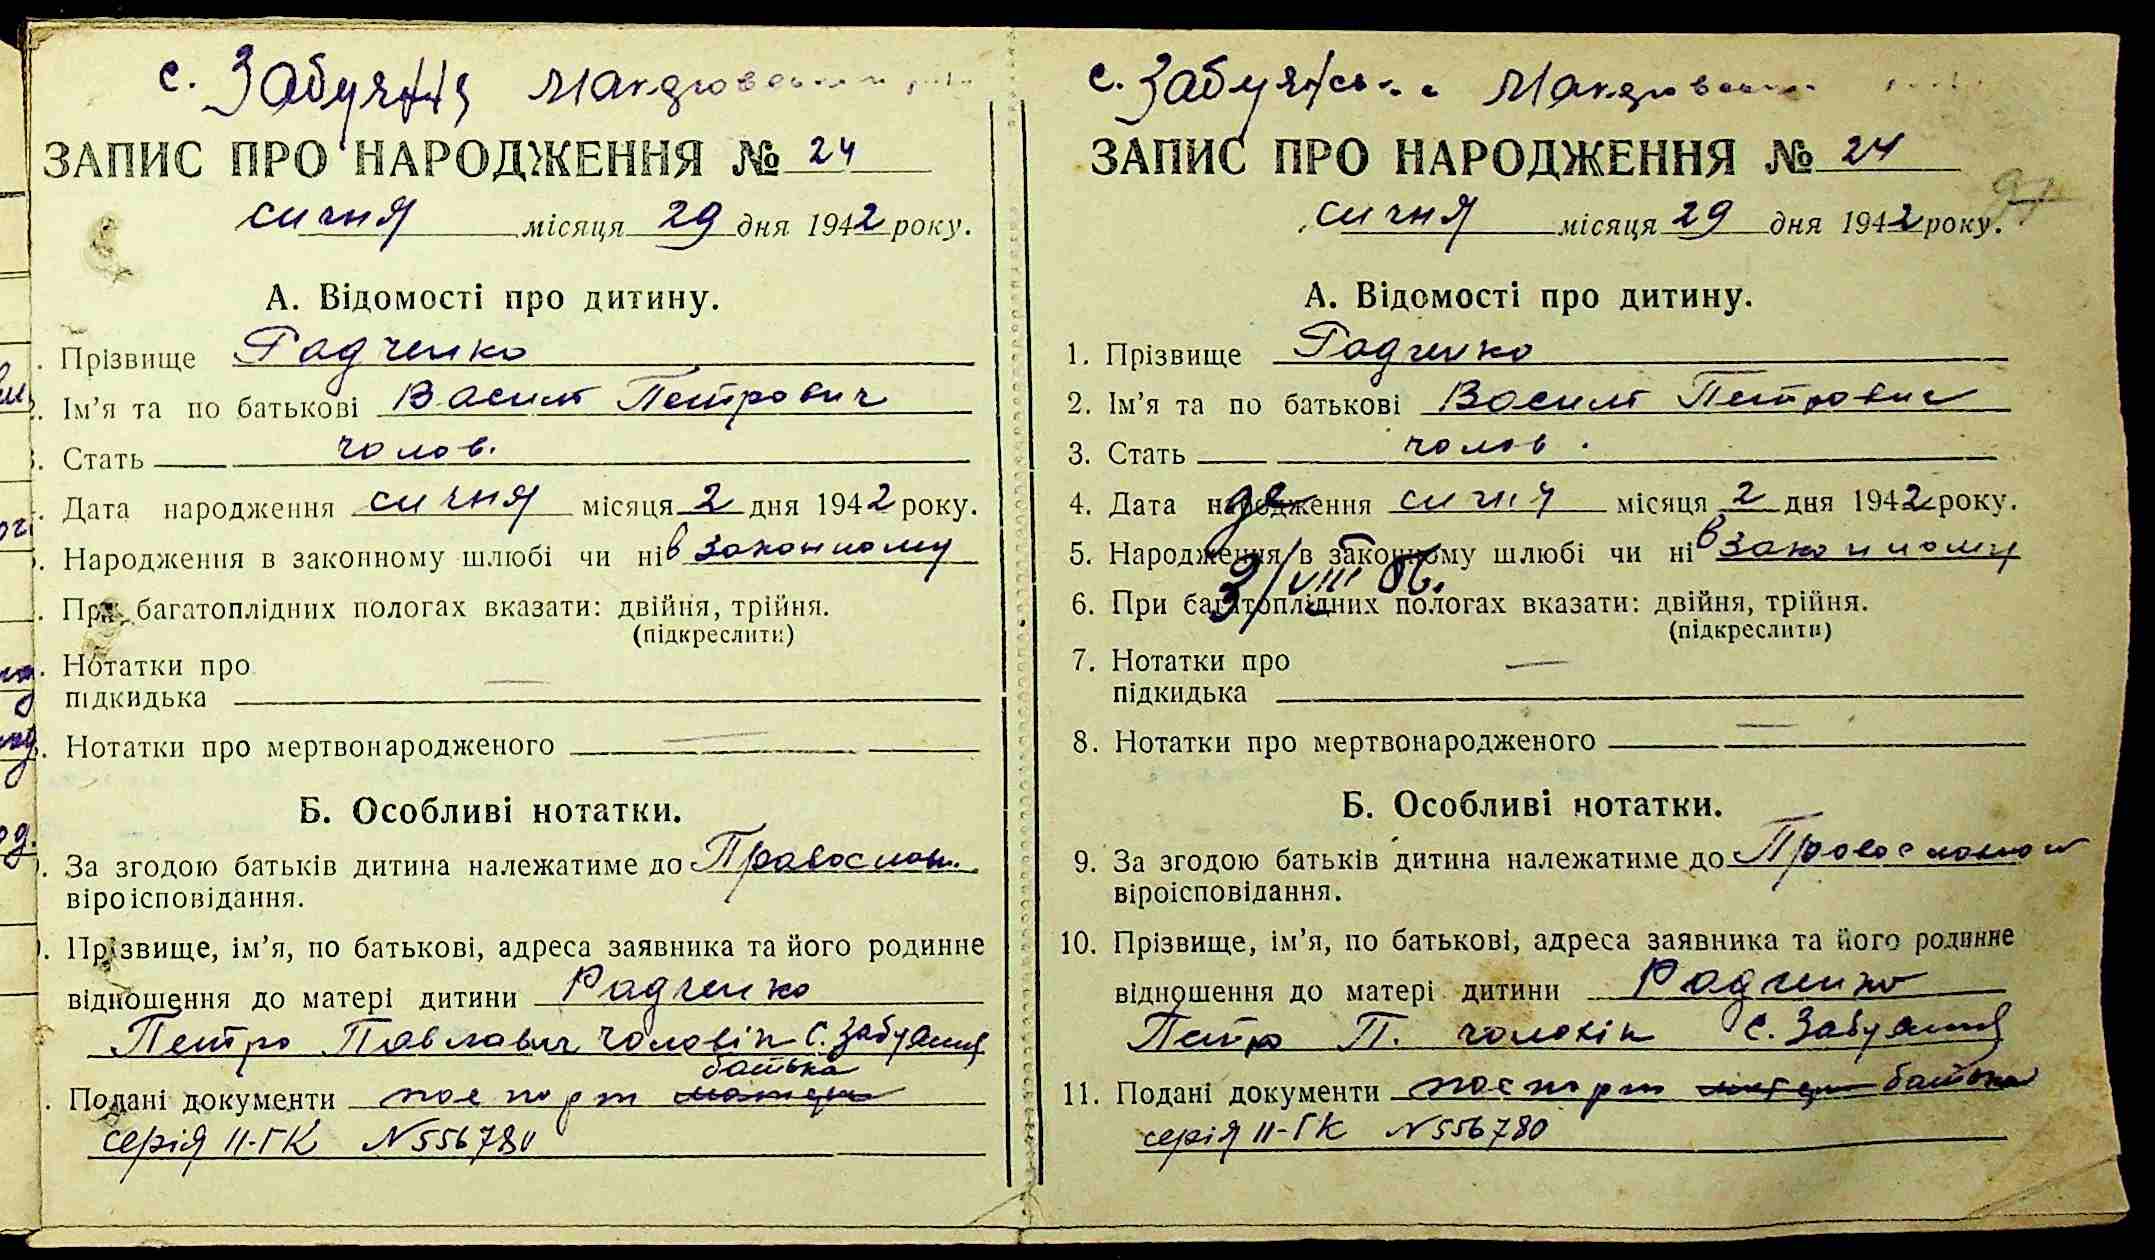 с. Забуяння
ЗАПИС ПРО НАРОДЖЕННЯ № 24
сичня місяця 29 дня 1942 року.
А. Відомості про дитину.
. Прізвище Радченко
. Ім’я та по батькові Василь Петрович
. Стать чолов.
. Дата народження сичня місяця 2 дня 1942 року.
. Народження в законному шлюбі чи ні в законному
. При багатоплідних пологах вказати: двійня, трійня.
(підкреслити)
. Нотатки про
підкидька —
. Нотатки про мертвонародженого —
Б. Особливі нотатки.
. За згодою батьків дитина належатиме до Православн.
віроісповідання.
. Прізвище, ім’я, по батькові, адреса заявника та його родинне
відношення до матері дитини Радченко
Петро Павлович чоловік с. Забуяння
батька
. Подані документи паспорт матери
серія II-ГК N 556780
с. Забуянська
ЗАПИС ПРО НАРОДЖЕННЯ № 24
97
сичня місяця 29 дня 1942 року.
А. Відомості про дитину.
1. Прізвище Радченко
2. Ім’я та по батькові Василь Петрович
3. Стать чолов.
4. Дата народження сичня місяця 2 дня 1942 року.
5. Народження в законному шлюбі чи ні в законному
3/VIII
6. При багатоплідних пологах вказати: двійня, трійня.
(підкреслити)
7. Нотатки про —
підкидька
8. Нотатки про мертвонародженого —
Б. Особливі нотатки.
9. За згодою батьків дитина належатиме до Православной
віроісповідання.
10. Прізвище, ім’я, по батькові, адреса заявника та його родинне
відношення до матері дитини Радченко
Петро П. чоловік с. Забуяння
11. Подані документи паспорт матери батька
серія II-ГК N 556780